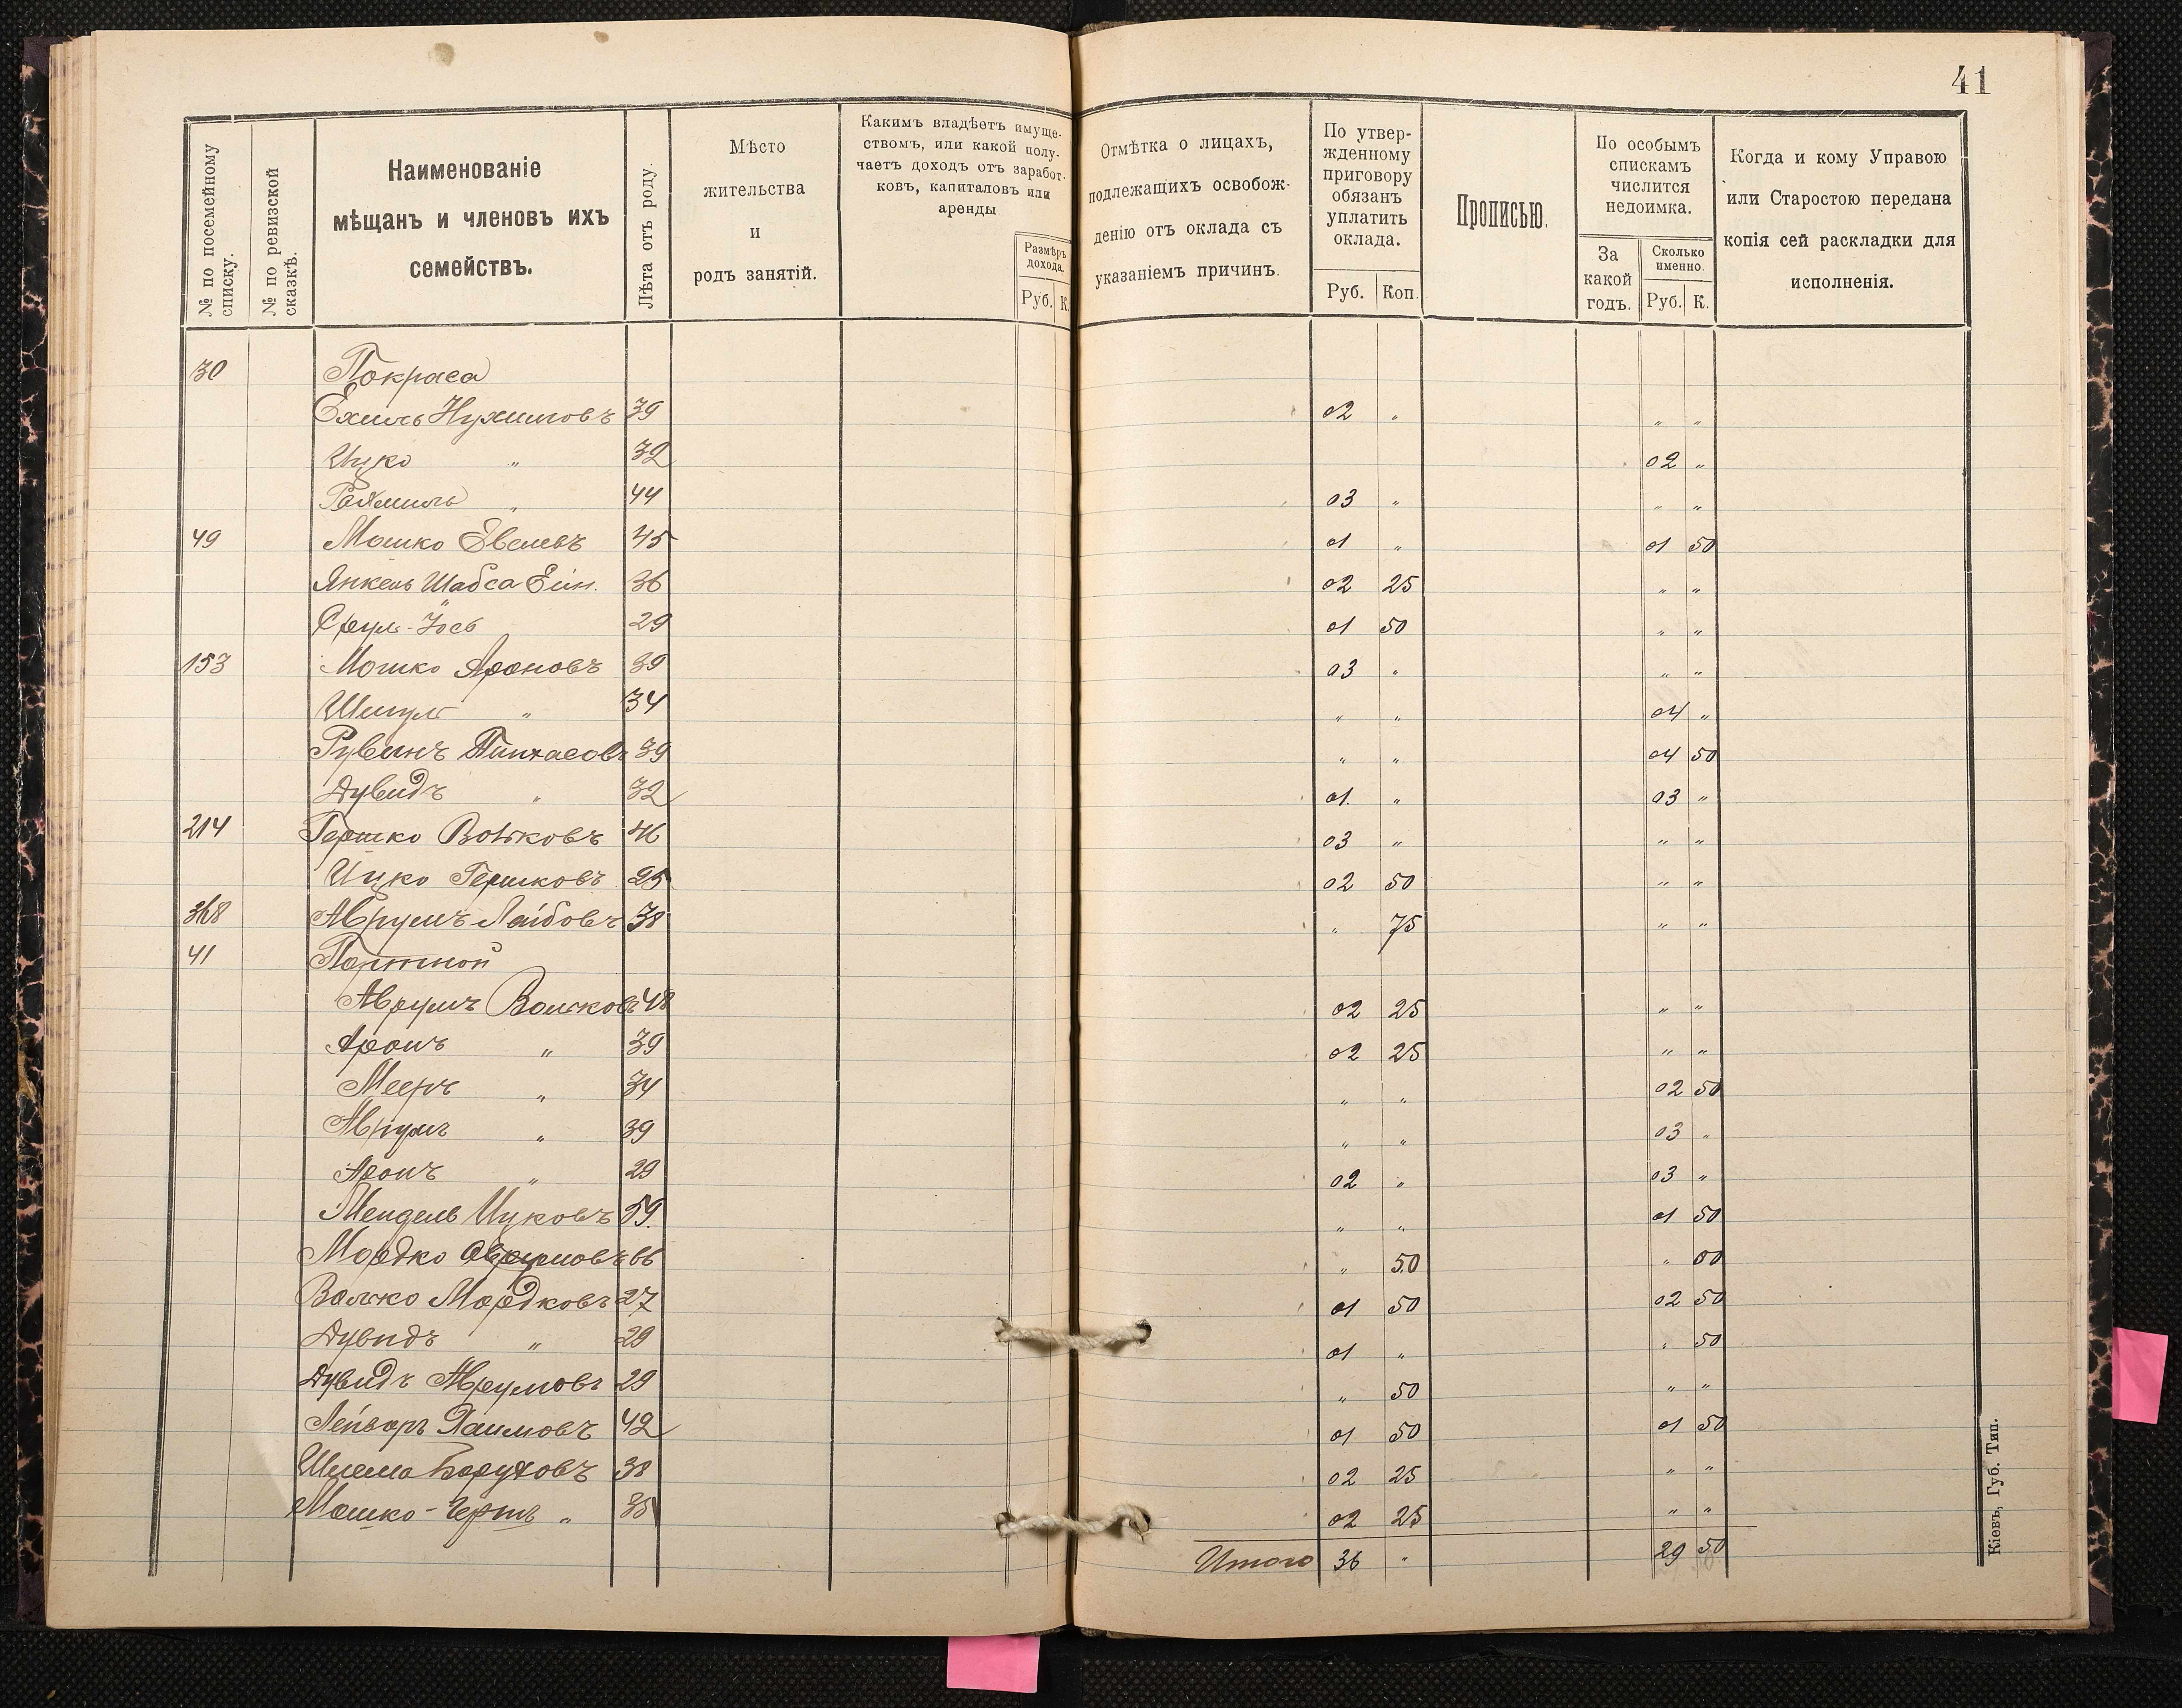 41
№ по посемейному списку.
№ по ревизской сказкѣ.
Наименованіе мѣщанъ и членовъ ихъ семействъ.
Лѣта отъ роду.
Мѣсто жительства и родъ занятій.
Какимъ владѣетъ имуществомъ, или какой получаетъ доходъ отъ заработковъ, капиталовъ или аренды
Размѣръ дохода.
Руб. К.
Отмѣтка о лицахъ, подлежащихъ освобожденію отъ оклада съ указаніемъ причинъ.
По утвержденному приговору обязанъ уплатить оклада.
Руб. Коп.
Прописью.
По особымъ спискамъ числится недоимка.
За какой годъ.
Сколько именно.
Руб. К.
Когда и кому Управою или Старостою передана копія сей раскладки для исполненія.
30 Покраса
Ехиль Нухимовъ 39 02 " " "
Ицко " 32 02 "
Рахмиль " 44 03 " " "
49 Мошко Евелевъ 45 01 " 01 50
Янкель Шабса 36 02 25 " "
Сруль-Іось 29 01 50 " "
153 Мошко Ароновъ 39 03 " " "
Шмуль " 34 " " 04 "
Рувинъ Пинхасовъ 39 " " 04 50
Дувидъ " 32 01 " 03 "
214 Гершко Вольковъ 46 03 " " "
Ицко Гершковъ 25 02 50 " "
Аврумъ Лейбовъ 38 " 75 " "
41 Портной
Аврумъ Вольковъ 48 02 25 " "
Аронъ " 39 02 25 " "
Мееръ " 34 " " 02 50
Аврумъ " 39 " " 03 "
Аронъ " 29 02 " 03 "
Мендель Ицковъ 59 " " 01 50
Мордко Аврумовъ 66 " 50 "
Волько Мордковъ 27 01 50 02 50
Дувидъ " 29 01 " " 50
Дувидъ Аврумовъ 29 " 50 " "
Лейзоръ Хаимовъ 42 01 50 01 50
Шлема Боруховъ 38 02 25 " "
Мошко- " 35 02 25 " "
Итого 36 " 29 50
Кіевъ, Губ. Тип.